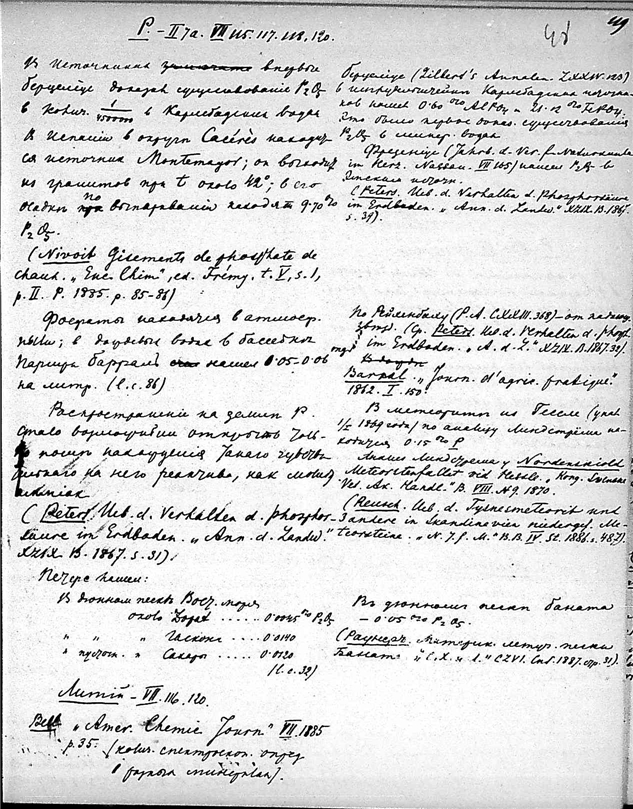 49
48
P. – II 7a. VII 115. 117. 118. 120.
Из источника впервые
Берцелиус доказал существование P₂O₅
в колич. 1/4500000 в Карлсбадских водах
В Испании в округе Cacérès находит-
ся источник Montemayor; он выходит
из гранитов при t около 42°; в его
осадке по выпаривании находят 9·70 %
P₂O₅.
(Nivoit Gisements de phosphate de
chaux. „Enc. Chim", ed. Frémy. t. V, s. 1,
p. II. P. 1885. p. 85–86)
Фосфаты находятся в атмосф.
пыли; в дождевых водах в бассейнах
Парижа Барраль нашел 0·05–0·06 mgr
на литр. (l. c. 86)
Распространение на земле P.
стало возможным открыть толь-
ко после нахождения такого чувстви-
тельного на него реактива, как молибд.
аммиак
(Peters. Ueb. d. Verhalten d. Phosphor-
säure im Erdboden. „Ann. d. Landw."
XXIX B. 1867. s. 31).
Петерс нашел:
Из дюнном песке
около ...... 0·0045 % P₂O₅
„ „ „ Гасконь .... 0·0140
„ пустын. „ Сахары .... 0·0120
(l. c. 32)
Литий – VII. 116. 120.
Bell „Amer. Chemic. Journ." VII. 1885
p. 35. (колич. спектроскоп. опред
в разных минералах).
Берцелиус (Gilbert's Annalen. LXXIV. 123)
в Карлсбадских источни-
ков нашел 0·60 % AlPO₄ и 21·12 % FePO₄.
Это было первое доказ. существования
P₂O₅ в минер. водах
Фрезениус (Jahrb. d. Ver. f. Naturkunde
im Herz. Nassau. VII 165) нашел P₂O₅ в
Эмских источн.
(Peters. Ueb. d. Verhalten d. Phosphorsäure
im Erdboden. „Ann. d. Landw." XXIX. B. 1867.
s. 39).
По (P. A. CXXIII. 368) – от
(Ср. Peters. Ueb. d. Verhalten d. Phosph.
im Erdboden. „A. d. L." XXIX. B. 1867. 39).
Barral. „Journ. d'agric. pratique."
1862. I. 150.
В метеорите из Гессле (упал
1/I 1869 года) по анализу Линдстрёма на-
ходится 0·15 % P
Анализ Линдстрема у Nordenskiöld
Meteoritenfallet vid Hessle. „Kong. Svenska
Vet. Ak. Handl." B. VIII. N 9. 1870.
(Reusch. Ueb. d. Tysnesmeteorit und
3 andere in Skandinavien niedergef. Me-
teorsteine. „N. J. f. M." B. B. IV. St. 1886. s. 487).
В дюнном песке Баната
– 0·05 % P₂O₅.
(Раунер. Материк. летуч. пески
Баната. „С. Х. и Л." CXVI. Спб. 1887. стр. 31).